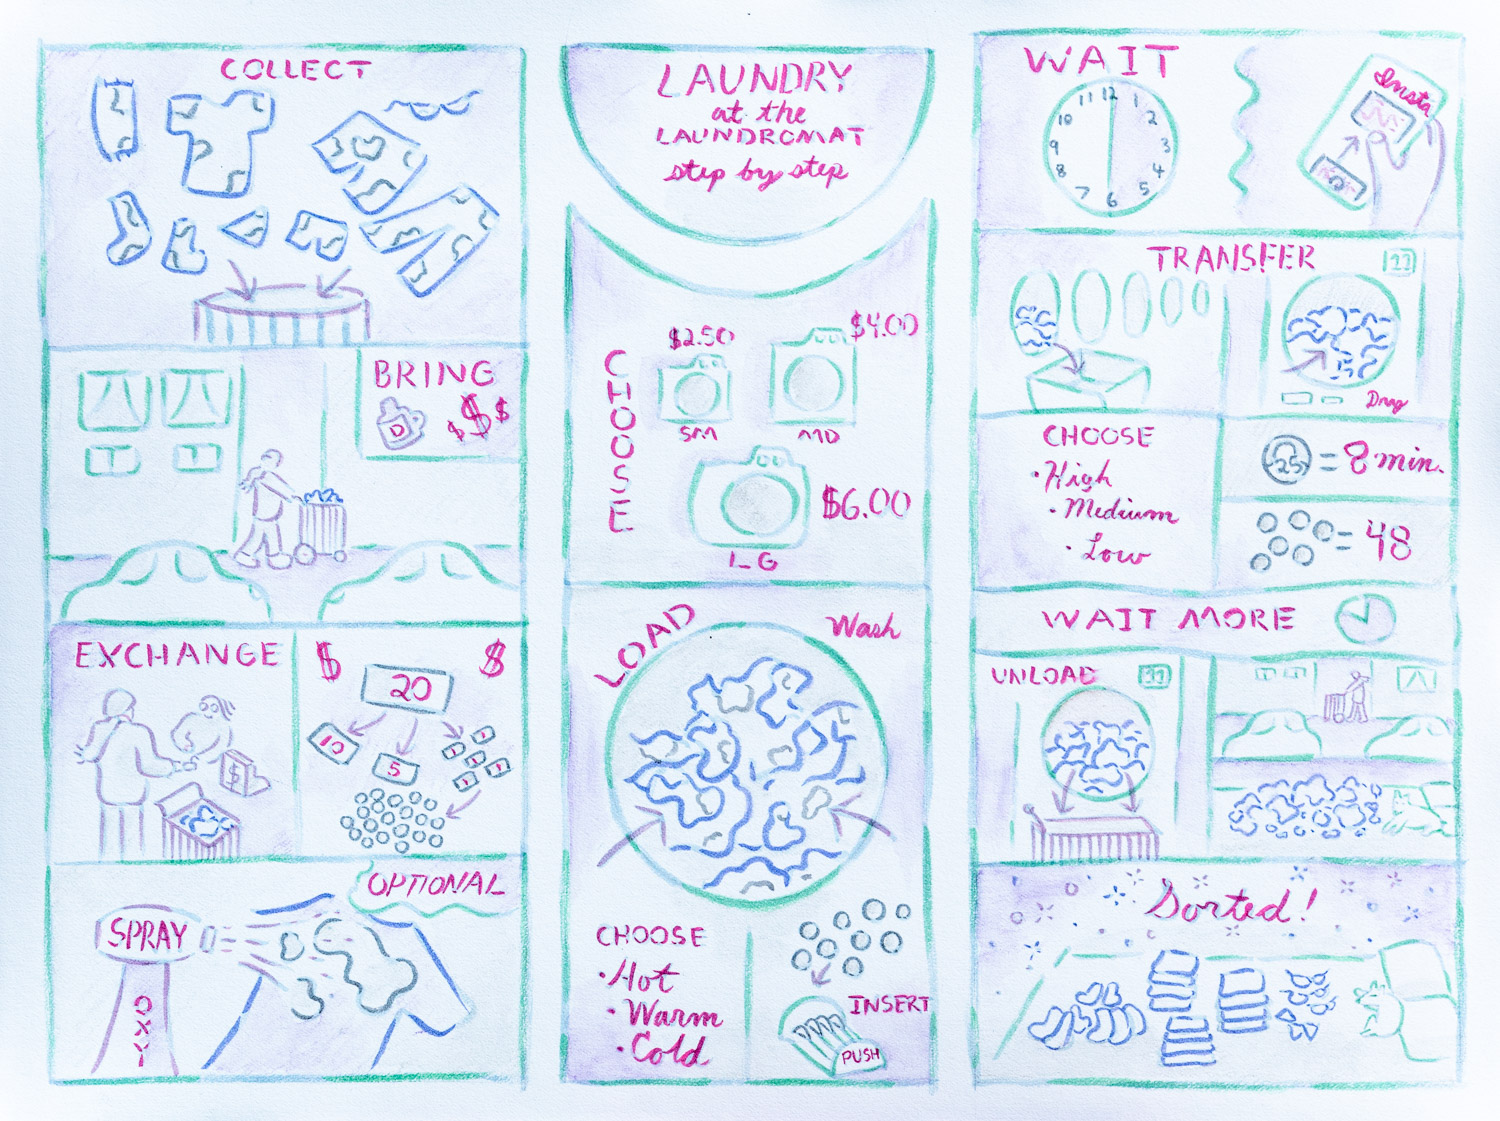 COLLECT
BRING
D
$$$
EXCHANGE
$
$ $
20
10
5
1
1
1
1
1
OPTIONAL
SPRAY
OXY
LAUNDRY
at the
LAUNDROMAT
step by step
CHOOSE
$2.50
SM
$4.00
MD
$6.00
LG
LOAD
Wash
CHOOSE
• Hot
• Warm
• Cold
INSERT
PUSH
WAIT
11 12 1
10 2
9 3
8 4
7 6 5
Insta
TRANSFER
11
Dry
CHOOSE
• High
• Medium
• Low
25 = 8 min.
= 48
WAIT MORE
UNLOAD
11
Sorted!